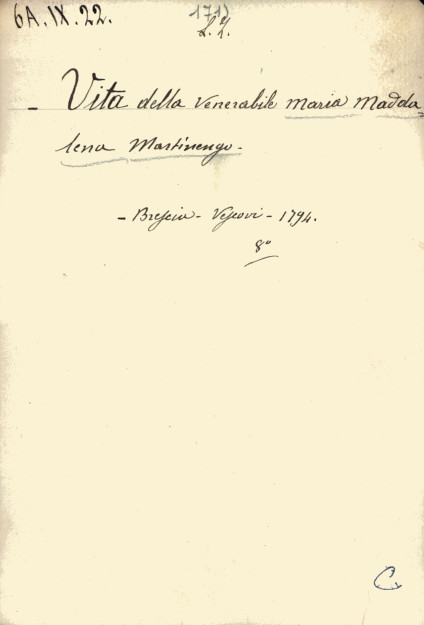 6A.IX.22.
- Vita della Venerabile Maria Madda=
lena Martinengo.
- Brescia - Vescovi - 1794.
8°
C.